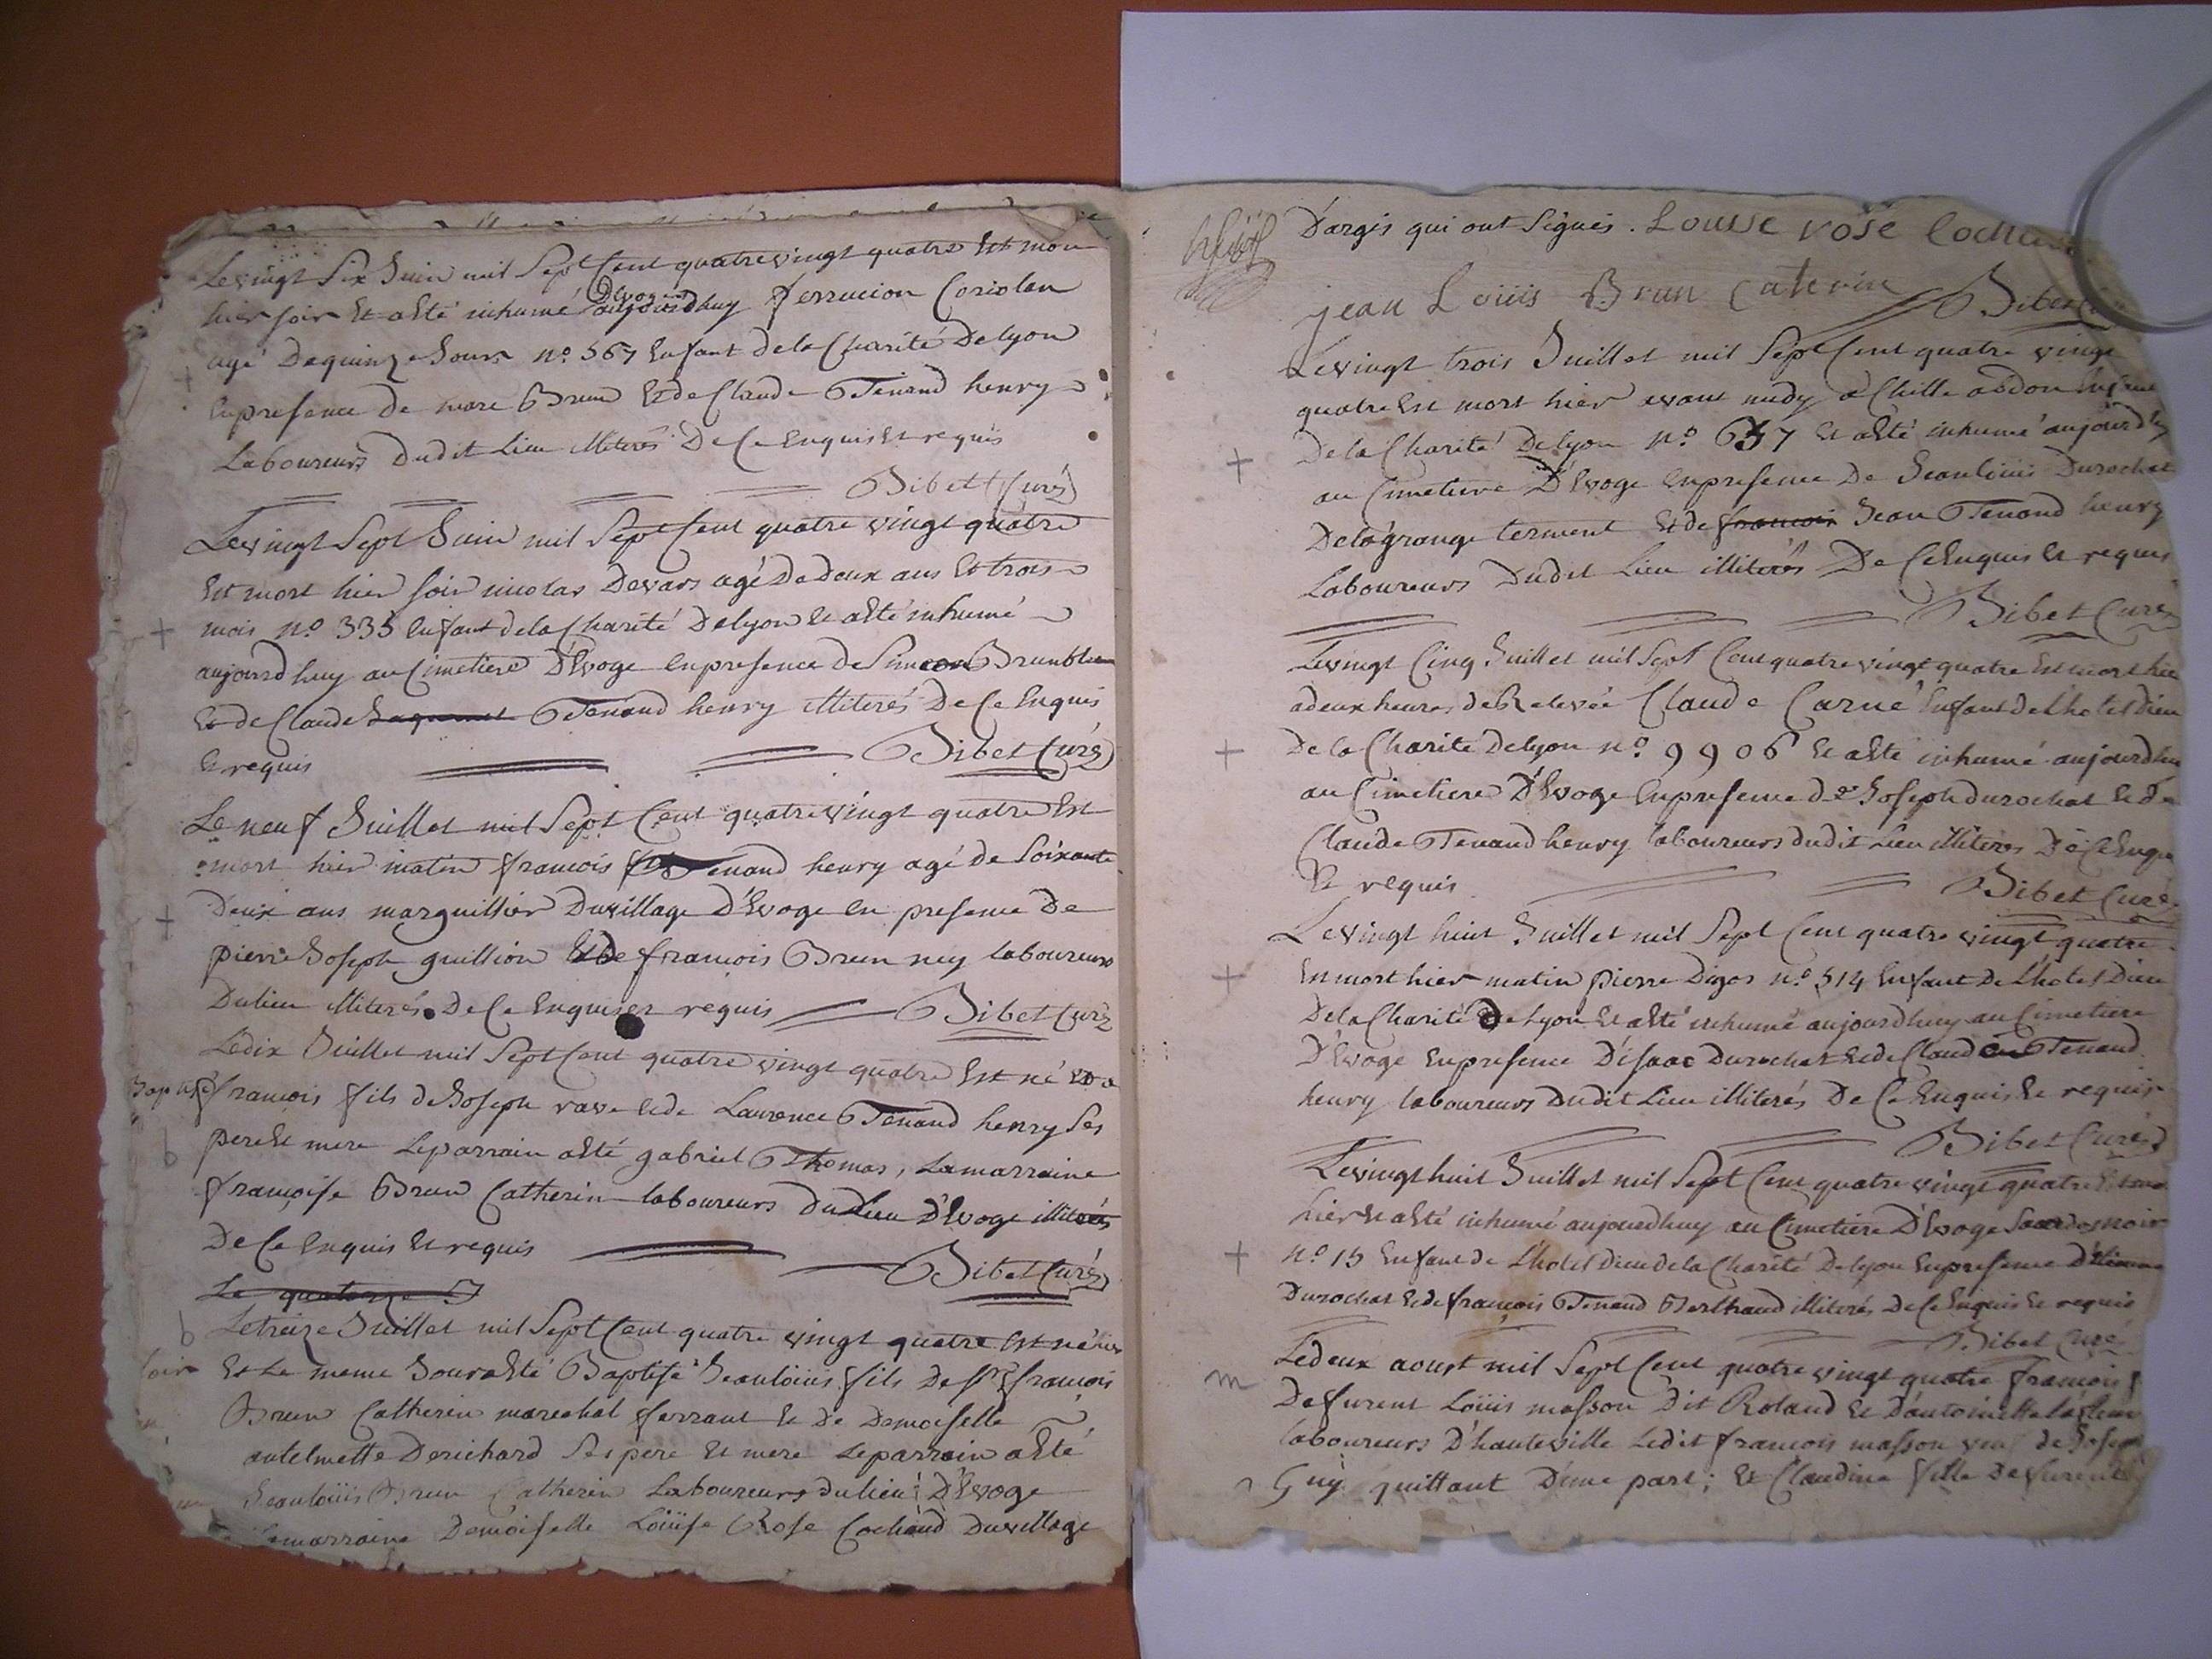 Le vingt Six Juin mil Sept Cent quatre vingt quatre Est mort
hier soir Et a Eté inhumé aujourdhuy ferrucion Coriolan
D'Evoge
agé De quinze Jours n.o 567 Enfant de la Charité De lyon
En presence de marc Brun Et de Claude Tenand henry
Laboureurs dudit Lieu illiterés De Ce Enquis Et requis
Bibet Curé
Le vingt Sept Juin mil Sept Cent quatre vingt quatre
Est mort hier soir nicolas Devars agé De deux ans Et trois
mois n.o 335 Enfant de la Charité De lyon Et a Eté inhumé
aujourdhuy au Cimetiere D'Evoge En presence de Simeon Brun
Et de Claude Tenand henry illiterés De Ce Enquis
Et requis Bibet Curé
Le neuf Juillet mil Sept Cent quatre vingt quatre Est
mort hier matin francois Tenand henry agé de Soixante
Deux ans marguillier Du village D'Evoge En presence De
pierre Joseph guillion Et De francois Brun ney laboureurs
Du lieu illiterés De Ce Enquis Et requis Bibet Curé
Le dix Juillet mil Sept Cent quatre vingt quatre Est né Et a
Baptisé francois fils de Joseph rave Et de Laurence Tenand henry Ses
b pere Et mere Le parrain a Eté gabriel Thomas, La marraine
françoise Brun Catherin laboureurs Du Lieu D'Evoge illiterés
De Ce Enquis Et requis Bibet Curé
Le quatorze J
b Le treize Juillet mil Sept Cent quatre vingt quatre Est né hier
soir Et Le meme Jour a Eté Baptisé Jean loüis fils De Sr françois
Brun Catherin marechal ferrant Et De Demoiselle
antelmette Derichard Ses pere Et mere Le parrain a Eté
Jean loüis Brun Catherin Laboureurs du lieu D'Evoge
La marraine Demoiselle Loüise Rose Cochand Du village
D'argis qui ont Signés. Louise rose Cochand
jean Loüis Brun Caterin
Bibet Curé
Le vingt trois Juillet mil Sept Cent quatre vingt
quatre Est mort hier avant midy achille abdon Enfant
De la Charité De lyon n.o 637 Et a Eté inhumé aujourdhuy
au Cimetiere D'Evoge En presence De Jean loüis Durochat
De la grange terment Et de francois Jean Tenand henry
Laboureurs Dudit Lieu illiterés De Ce Enquis Et requis
Bibet Curé
Le vingt Cinq Juillet mil Sept Cent quatre vingt quatre Est mort hier
a deux heures de Relevée Claude Carné Enfant de Lhotel Dieu
De la Charité De lyon n.o 9906 Et a Eté inhumé aujourdhuy
au Cimetiere D'Evoge En presence de Joseph durochat Et De
Claude Tenand henry laboureurs dudit Lieu illiterés De Ce Enquis
Et requis Bibet Curé
Le vingt huit Juillet mil Sept Cent quatre vingt quatre
Est mort hier matin pierre Digos n.o 514 Enfant De Lhotel Dieu
De la Charité De lyon Et a Eté inhumé aujourdhuy au Cimetiere
D'Evoge En presence D'isaac Durochat Et de Claude Tenand
henry laboureurs Dudit Lieu illiterés De Ce Enquis Et requis
Bibet Curé
Le vingt huit Juillet mil Sept Cent quatre vingt quatre Est mort
hier Et a Eté inhumé aujourdhuy au Cimetiere D'Evoge
n.o 15 Enfant de Lhotel Dieu de la Charité De lyon En presence
Durochat Et de françois Tenand Berthand illiterés De Ce Enquis Et requis
Bibet Curé
Le deux aoust mil Sept Cent quatre vingt quatre françois
m De furent Loüis masson Dit Roland Et D'antoinette
laboureurs D'hauteville Ledit francois masson de Joseph
Guy quittant D'une part; Et Claudine fille De furent